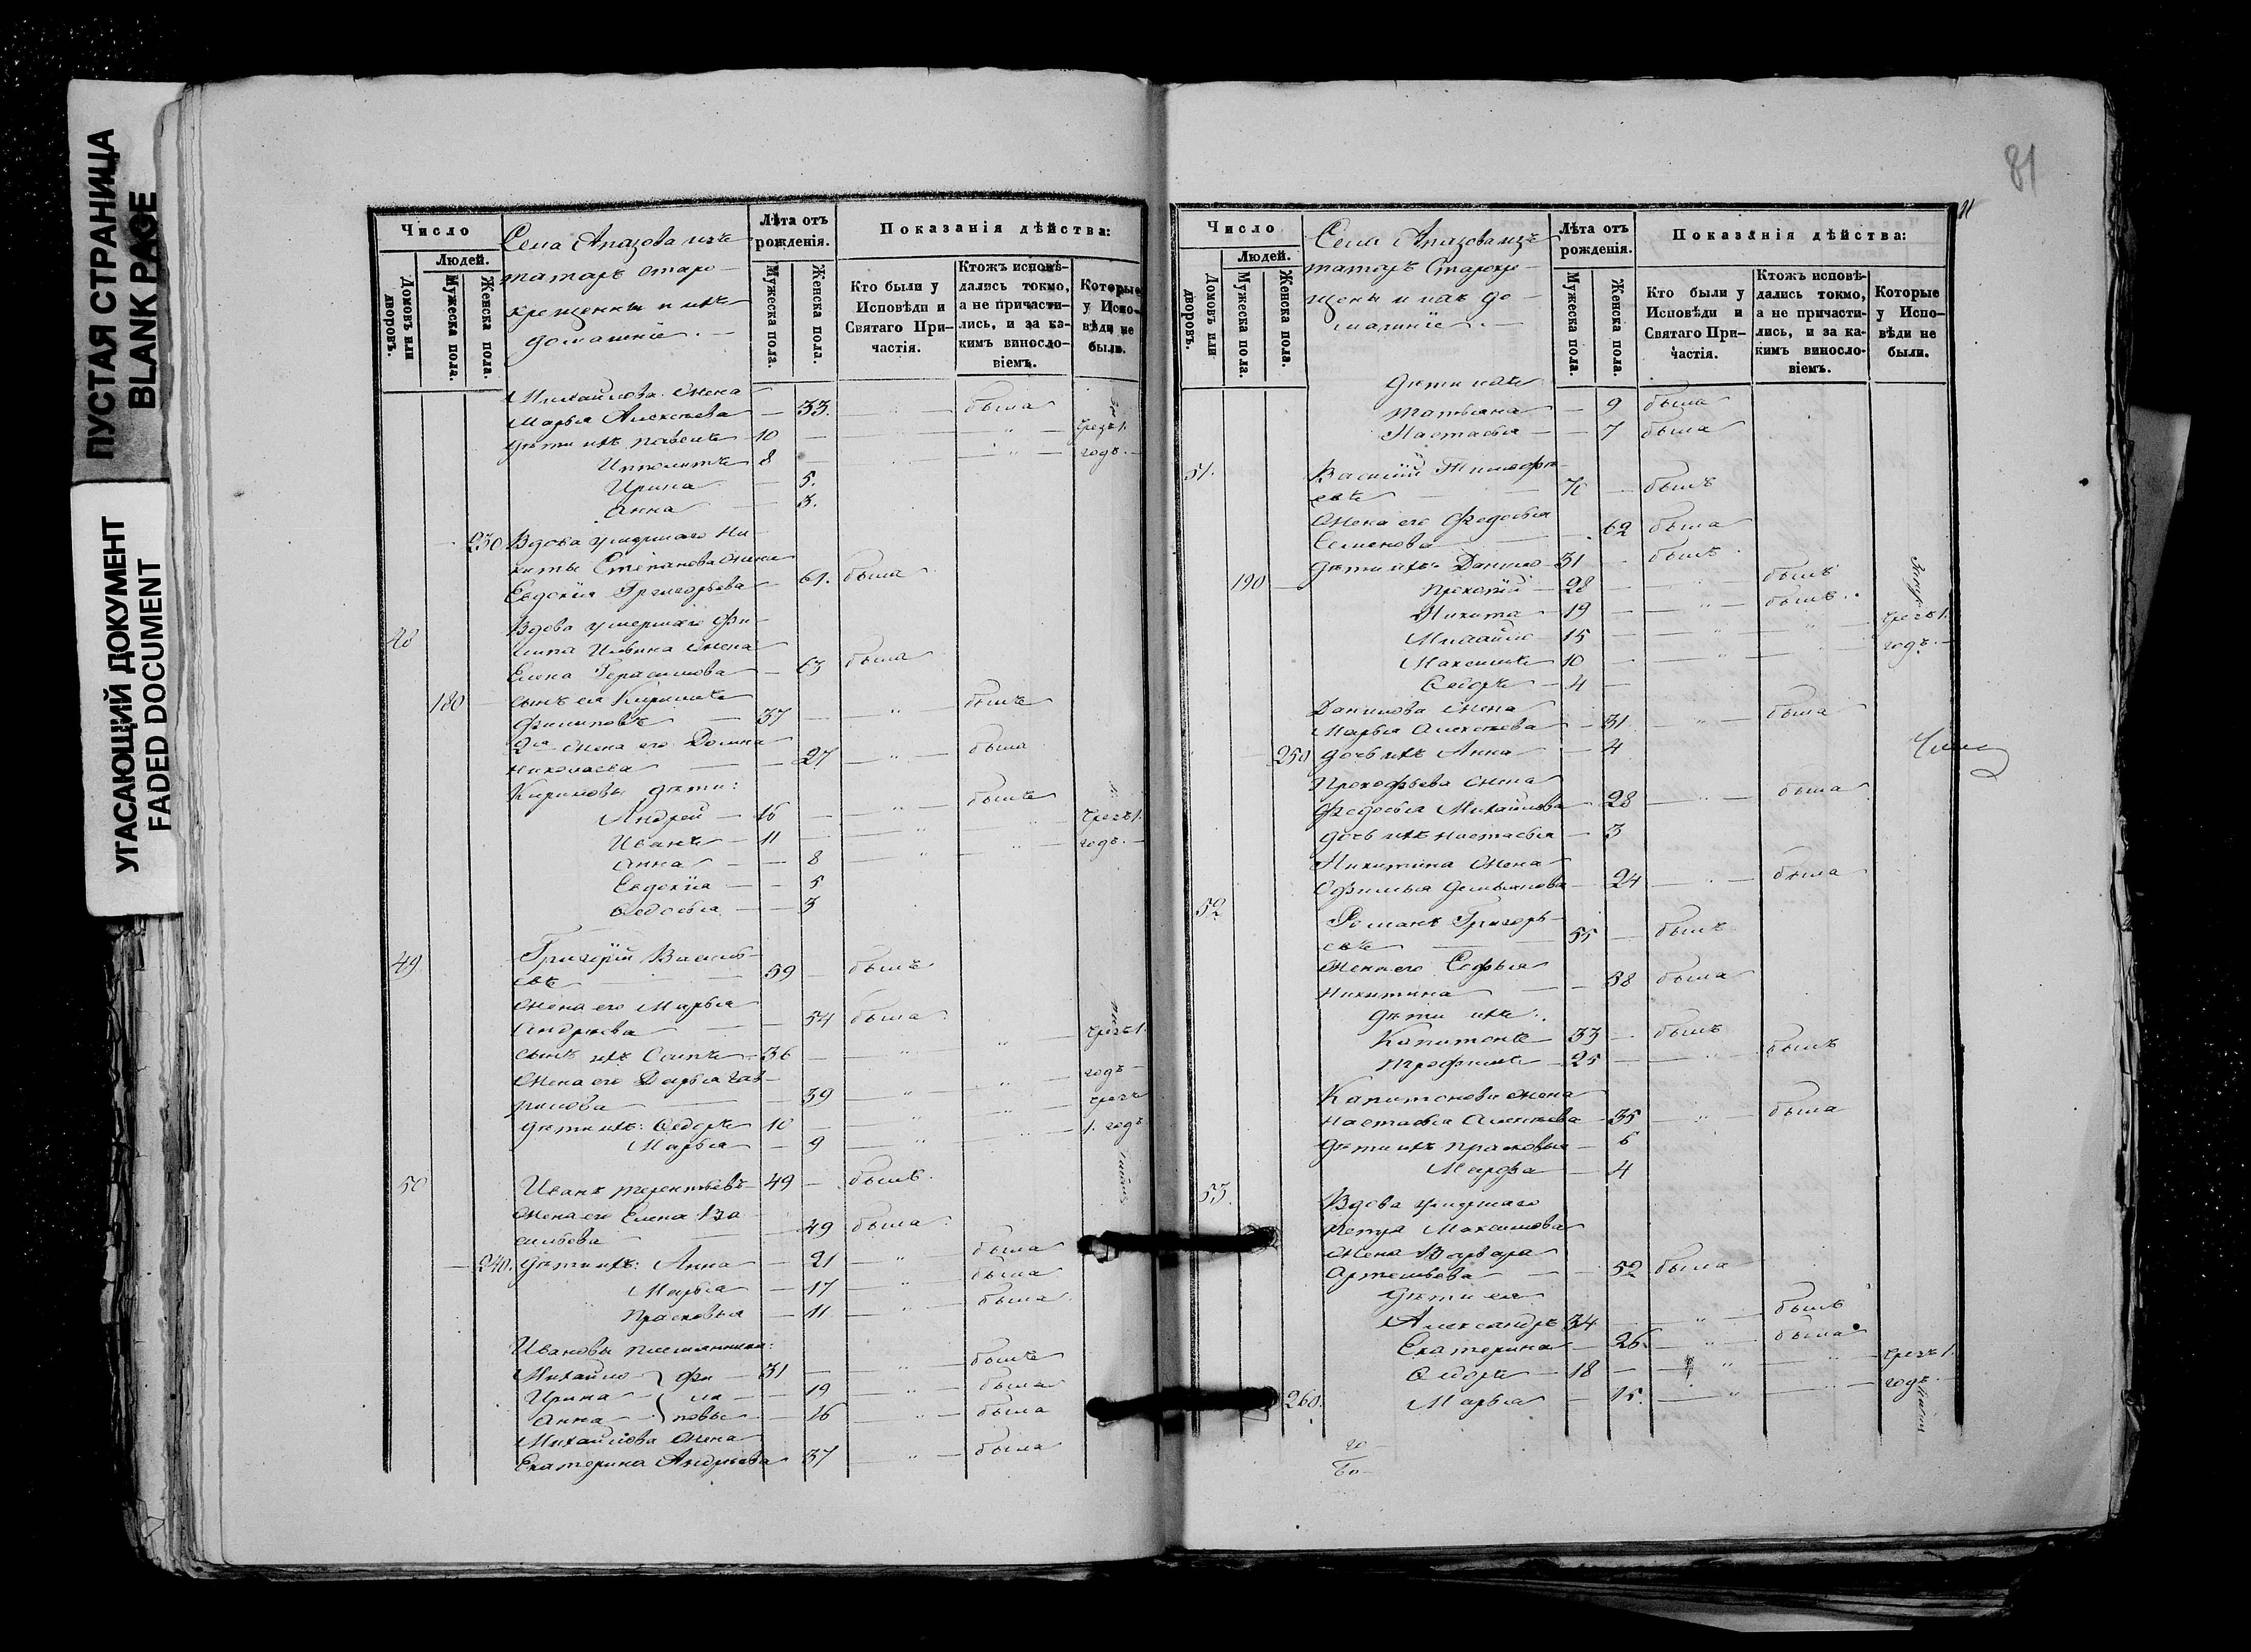 ПУСТАЯ СТРАНИЦА
BLANK PAGE
УГАСАЮЩИЙ ДОКУМЕНТ
FADED DOCUMENT
Число
Людей.
Домовъ или дворовъ.
Мужеска пола.
Женска пола.
Села Апазова изъ
татаръ старо-
крещенны и ихъ
домашніе. —
Лѣта отъ рожденія.
Мужеска пола.
Женска пола.
Показанія дѣйства:
Кто были у Исповѣди и Святаго При-частія.
Ктожъ исповѣ-дались токмо, а не причасти-лись, и за ка-кимъ винословіемъ.
Которые у Испо-вѣди не были.
Михайлова жена
Марья Алексѣева — 33. была
дѣти ихъ Павелъ 10 чрезъ 1.
Ипполитъ 8 годъ.
Ирина — 5.
Анна — 3.
230 Вдова умершаго Ни-
киты Степанова жена
Евдокія Григорьева 61. была
48 Вдова умершаго Фи-
липа Ильина жена
Елена Герасимова — 63 была
180 сынъ ея Кирилъ
Филиповъ — 37 былъ
2я жена его Домна
Николаева — 27 была
Кириловы дѣти:
Андрей — 16 былъ
Иванъ — 11 чрезъ 1.
Анна — 8 годъ.
Евдокія — 5
Ѳедосья — 3
49 Григорій Василь-
евъ — 59 былъ
жена его Марья
Андреева — 54 была
сынъ ихъ Осипъ 36 чрезъ 1.
жена его Дарья Гав-
рилова — 39 годъ
дѣти ихъ: Ѳедоръ 10 чрезъ
Марья — 9 1. годъ
50 Иванъ Терентьевъ 49 былъ
жена его Елена Ва-
сильева — 49 была
240. дѣти ихъ: Анна — 21 была
Марья — 17 была
Прасковья — 11 была
Ивановы племянники:
Михайло Фи- 31 былъ
Ирина ли- 19 была
Анна повы 16 была
Михайлова жена
Екатерина Андреева 37 была
81
Число
Людей.
Домовъ или дворовъ.
Мужеска пола.
Женска пола.
Села Апазова изъ
татаръ Старокре-
щены и ихъ до-
машніе. —
Лѣта отъ рожденія.
Мужеска пола.
Женска пола.
Показанія дѣйства:
Кто были у Исповѣди и Святаго При-частія.
Ктожъ исповѣ-дались токмо, а не причасти-лись, и за ка-кимъ винословіемъ.
Которые у Испо-вѣди не были.
дѣти ихъ
Татьяна — 9 была
Настасья — 7 была
51. Василій Тимофе-
евъ былъ
жена его Ѳедосья
Семенова — 62 была
дѣти ихъ Данило 31 былъ
190 Прокопій 28 былъ
Никита 19 былъ
Михайло 15 чрезъ 1.
Максимъ 10 годъ.
Ѳедоръ — 4
Данилова жена
Марья Алексѣева — 31 была
250 дочь ихъ Анна — 4
Прокофьева жена
Ѳедосья Михайлова 28 была
дочь ихъ Настасья — 3
Никитина жена
Офимья Демьянова — 24 была
52 Романъ Григорь-
евъ — 55 былъ
жена его Софья
Никитина — 38 была
дѣти ихъ:
Капитонъ 33 былъ
Трофимъ 25 былъ
Капитонова жена
Настасья Алексѣева 35 была
дѣти ихъ Прасковья — 6
Марфа — 4
53. Вдова умершаго
Петра Максимова
жена Варвара
Артемьева — 52 была
дѣти ея
Александръ 34 былъ
Екатерина — 26 была
Ѳедоръ 18 чрезъ 1.
260. Марья — 15. годъ